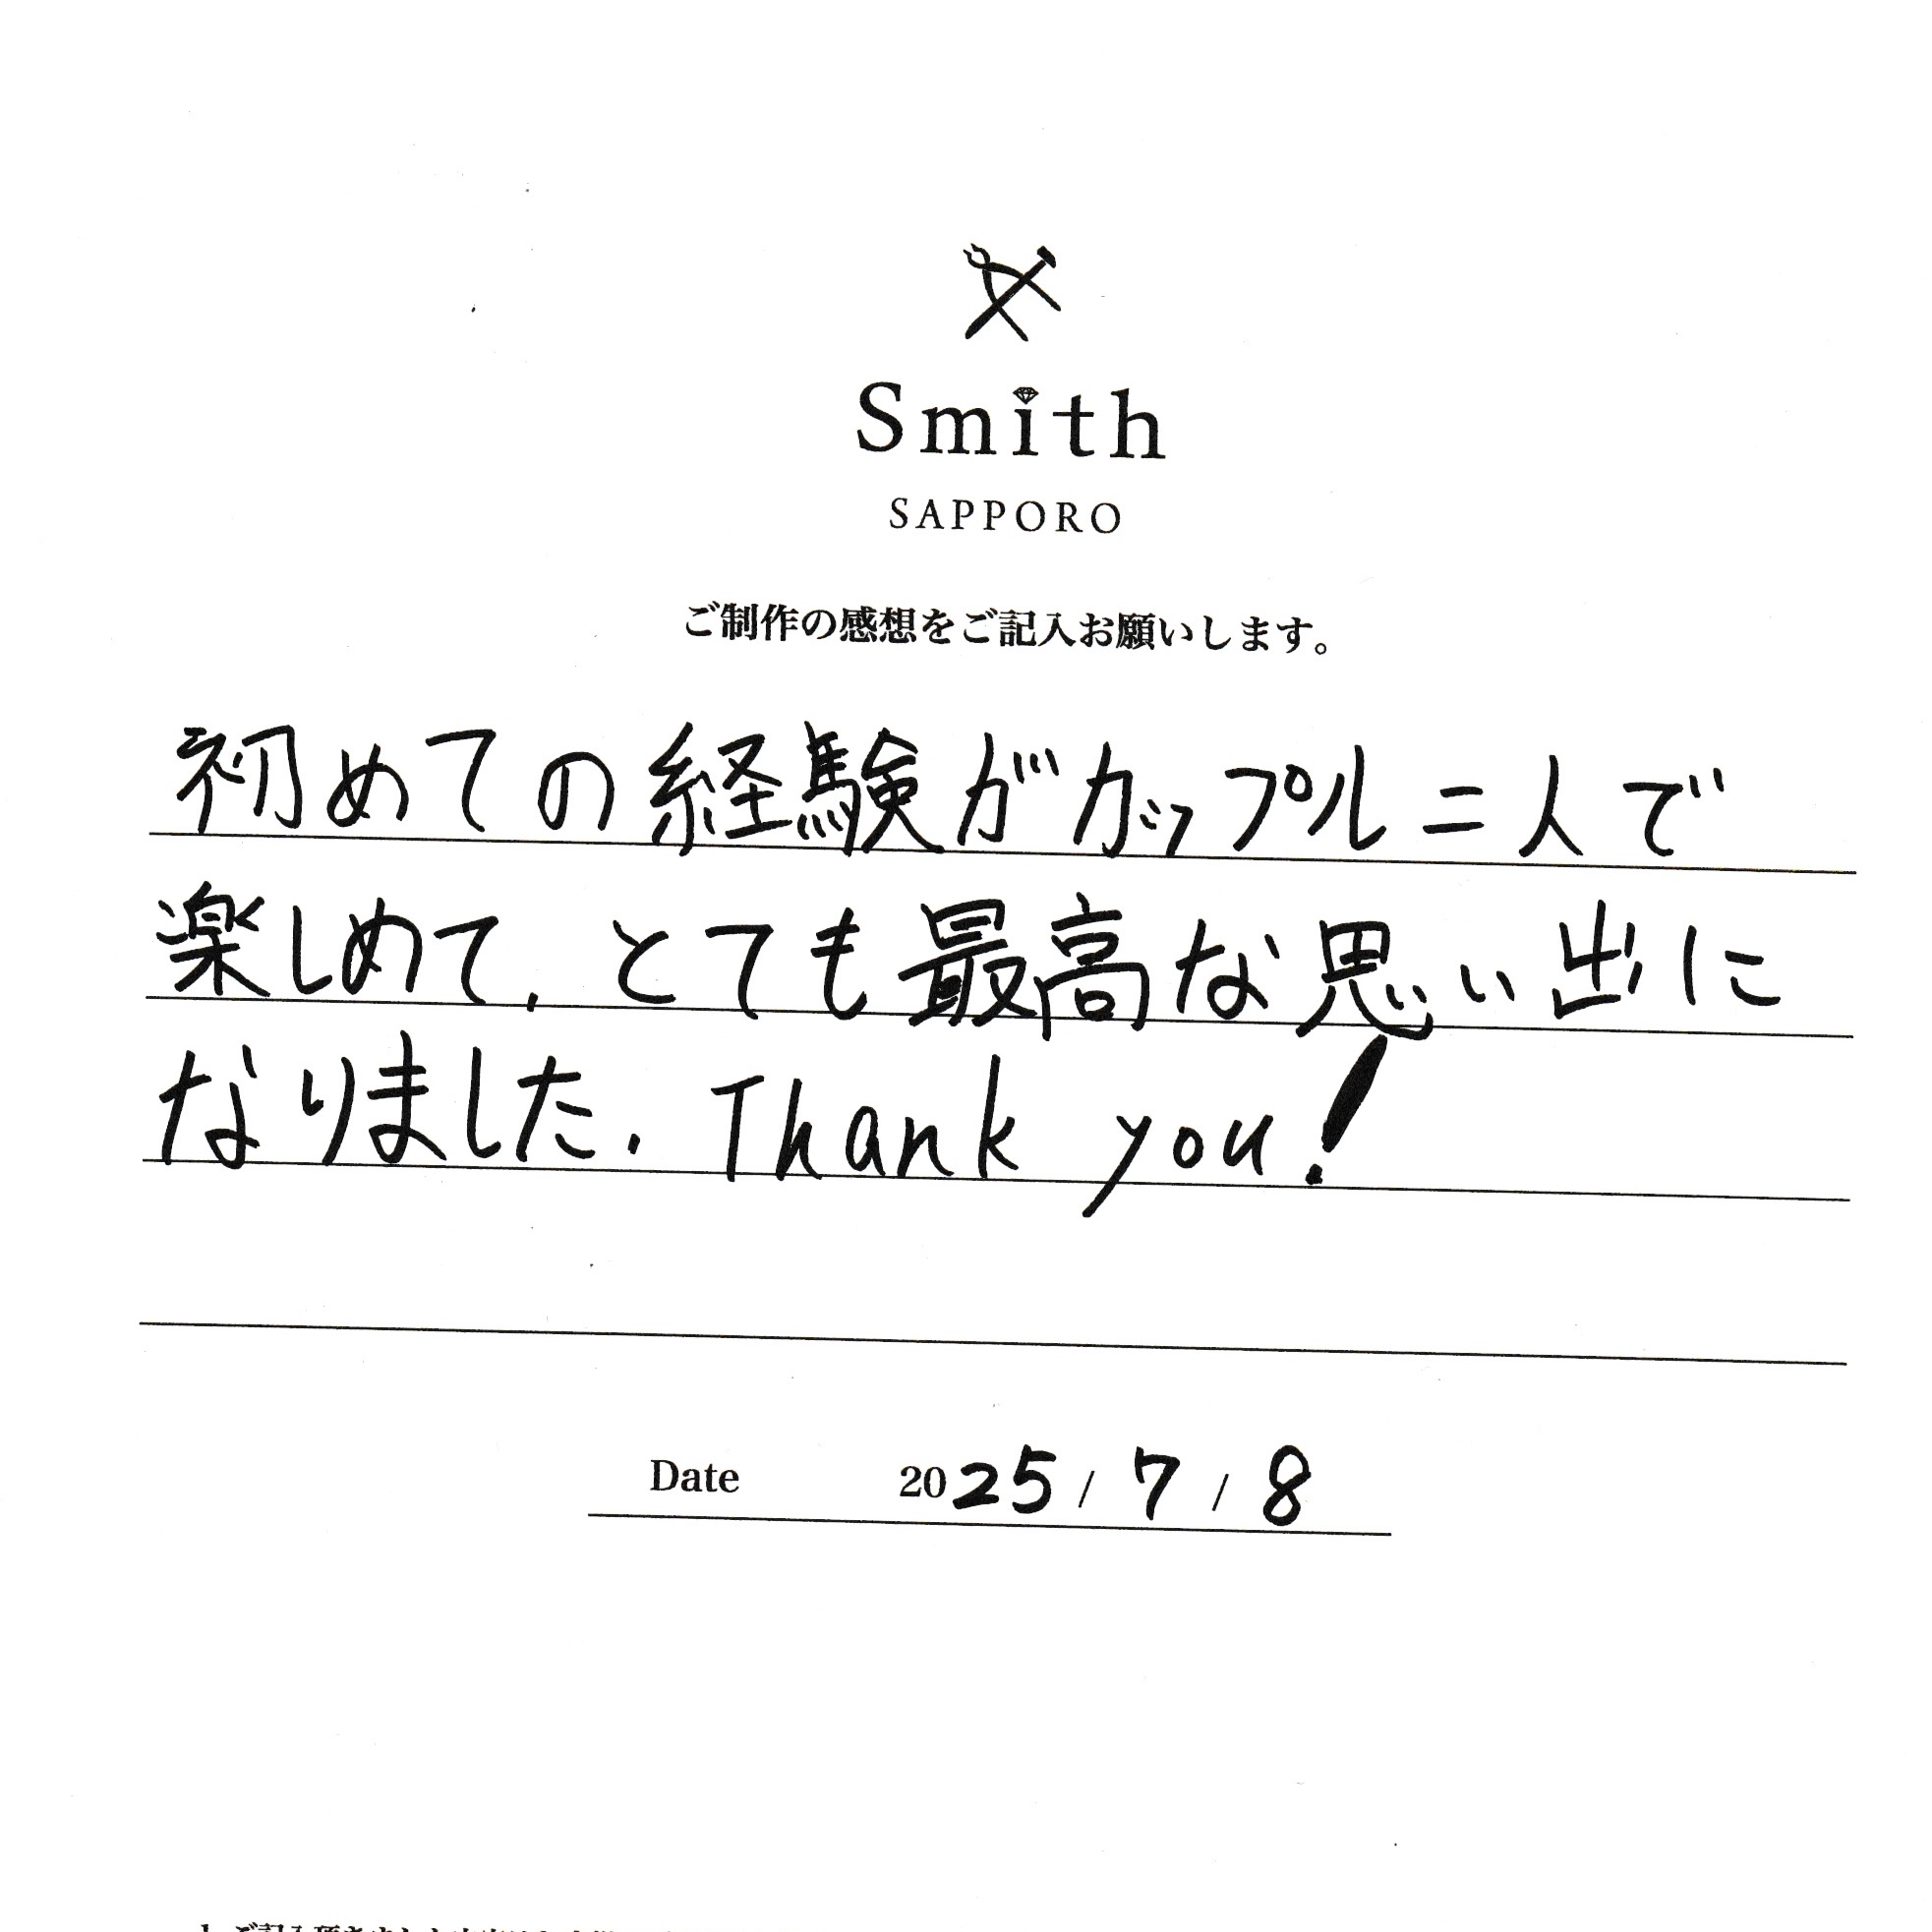 Smith
SAPPORO
ご制作の感想をご記入お願いします。
初めての経験がカップル二人で
楽しめて、とても最高な思い出に
なりました. Thank you!
Date 2025/7/8